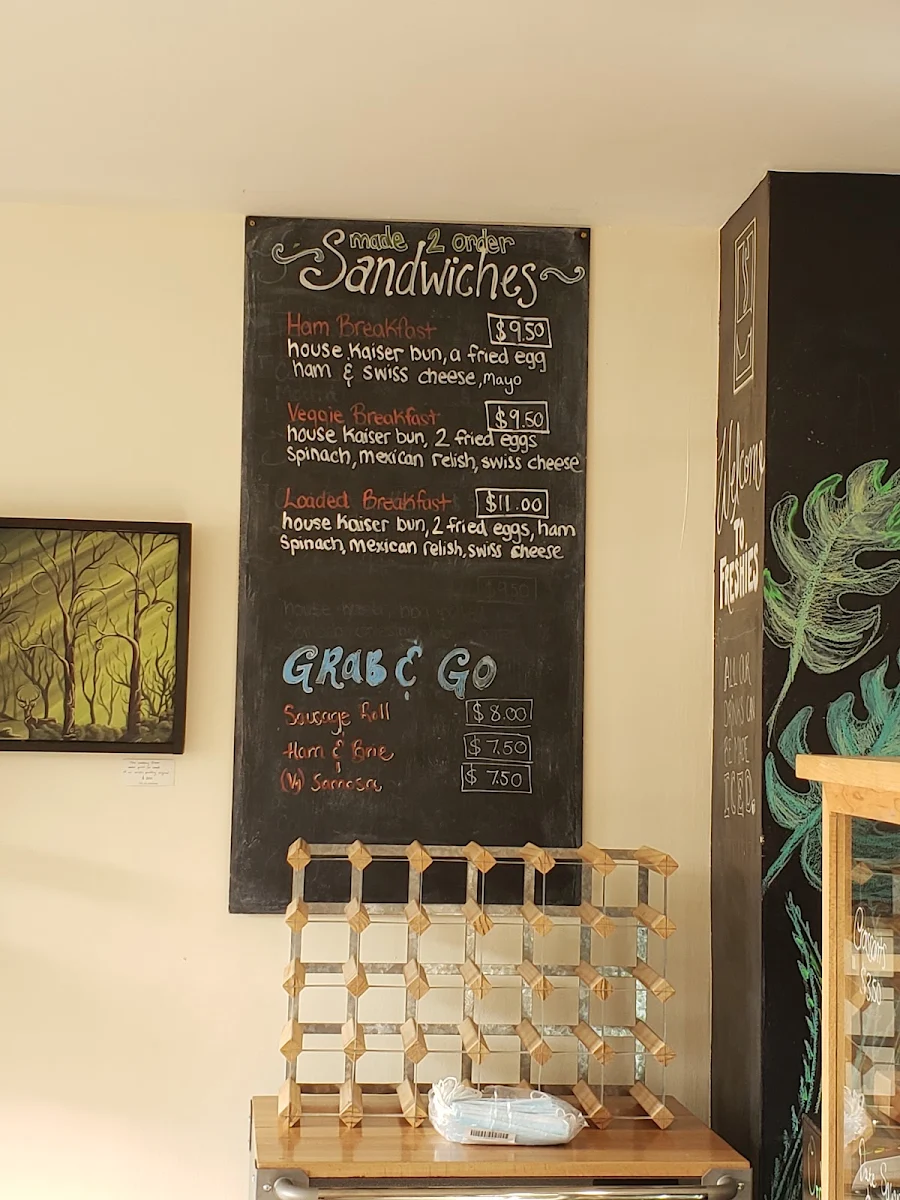 made 2 order
Sandwiches
Ham Breakfast $9.50
house Kaiser bun, a fried egg
ham & swiss cheese, mayo
Veggie Breakfast $9.50
house Kaiser bun, 2 fried eggs
Spinach, mexican relish, swiss cheese
Loaded Breakfast $11.00
house Kaiser bun, 2 fried eggs, ham
Spinach, mexican relish, swiss cheese
$9.50
GRAB & GO
Sausage Roll $8.00
Ham & Brie $7.50
(Vg) Samosa $7.50
Welcome
TO
FRESHIES
ALL OUR
DRINKS CAN
BE MADE
ICED.